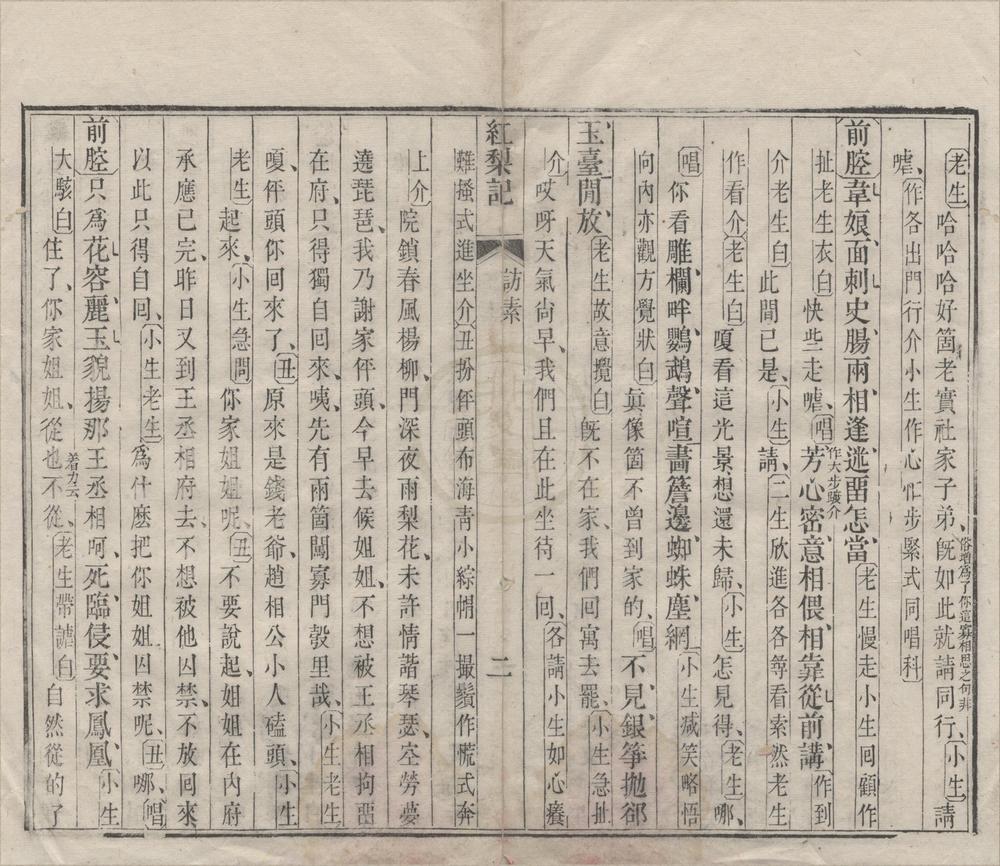 老生哈哈哈好箇老實社家子弟旣如此就請同行俗增為了你這寡相思之句非小生請
嘑作各出門行介小生作心忙步緊式同唱科
前腔韋娘面刺史腸兩相逢逃畱怎當老生慢走小生回顧作
扯老生衣白快些走嘑唱作大步駿介芳心密意相偎相靠從前講作到
介老生白此間已是小生請二生欣進各各等看索然老生
作看介老生白嗄看這光景想還未歸小生怎見得老生哪
唱你看雕欄畔鸚鵡聲喧畫簷邊蜘蛛塵網小生喊笑略悟
向內亦觀方覺狀白眞像箇不曾到家的唱不見銀箏拋卻
玉臺閒放老生故意攪白旣不在家我們回寓去罷小生急扯
介哎呀天氣尙早我們且在此坐待一回各請小生如心癢
難搔式進坐介丑扮伻頭布海靑小綜帽一撮鬚作慌式奔
紅梨記 訪素 二
上介院鎖春風楊柳門深夜雨梨花未許情諧琴瑟空勞夢
遶琵琶我乃謝家伻頭今早去候姐姐不想被王丞相拘畱
在府只得獨自回來咦先有兩箇闖寡門殼里哉小生老生
嗄伻頭你回來了丑原來是錢老爺趙相公小人磕頭小生
老生起來小生急問你家姐姐呢丑不要說起姐姐在內府
承應已完昨日又到王丞相府去不想被他囚禁不放回來
以此只得自回小生老生為什麽把你姐姐囚禁呢丑哪唱
前腔只為花容麗玉貌揚那王丞相呵死臨侵要求鳳凰小生
大駭白住了你家姐姐從也不從着力云老生帶謔白自然從的了